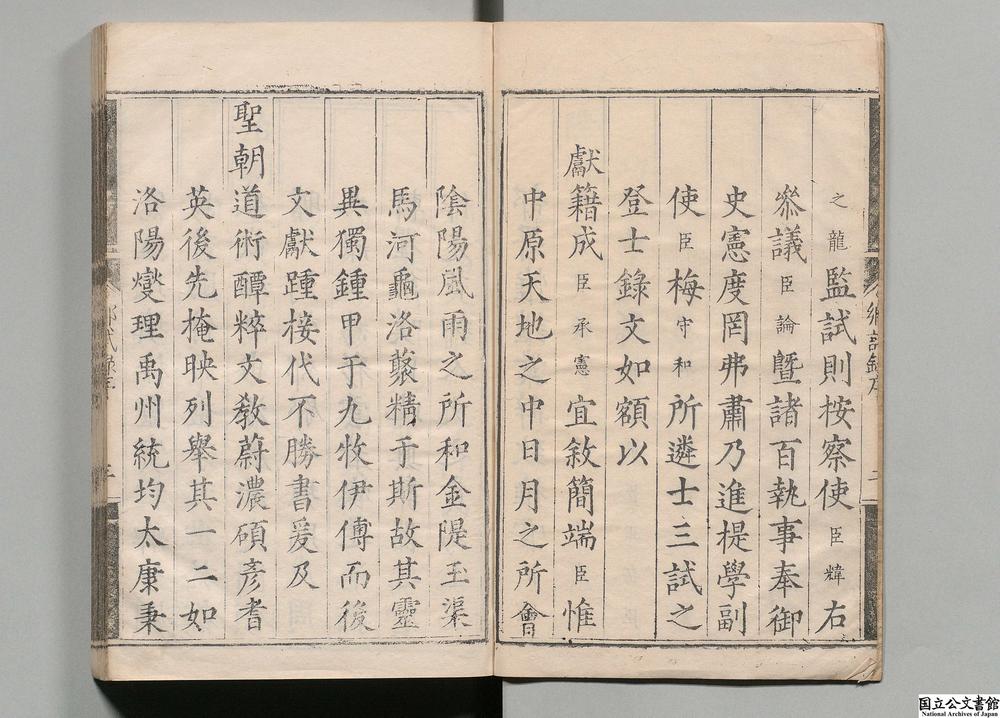 之龍監試則桉察使臣煒右
叅議臣論暨諸百執事奉御
史憲度罔弗肅乃進提學副
使臣梅守和所遴士三試之
登士錄文如額以
獻籍成臣承憲宜敘簡端臣惟
中原天地之中日月之所會
陰陽風雨之所和金隄玉渠
馬河龜洛藂精于斯故其靈
異獨鍾甲于九牧伊傅而後
文獻踵接代不勝書爰及
聖朝道術醰粹文教蔚濃碩彥耆
英後先掩映列舉其一二如
洛陽燮理禹州統均太康秉
鄉試錄序
二
国立公文書館
National Archives of Japan